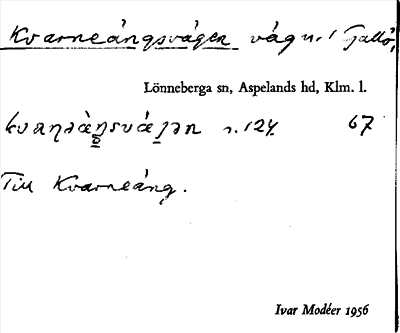 Kvarneångsvägen väg n. 1 Gallö,
Lönneberga sn, Aspelands hd, Klm. l.
s. 124 67
Till Kvarneäng.
Ivar Modéer 1956